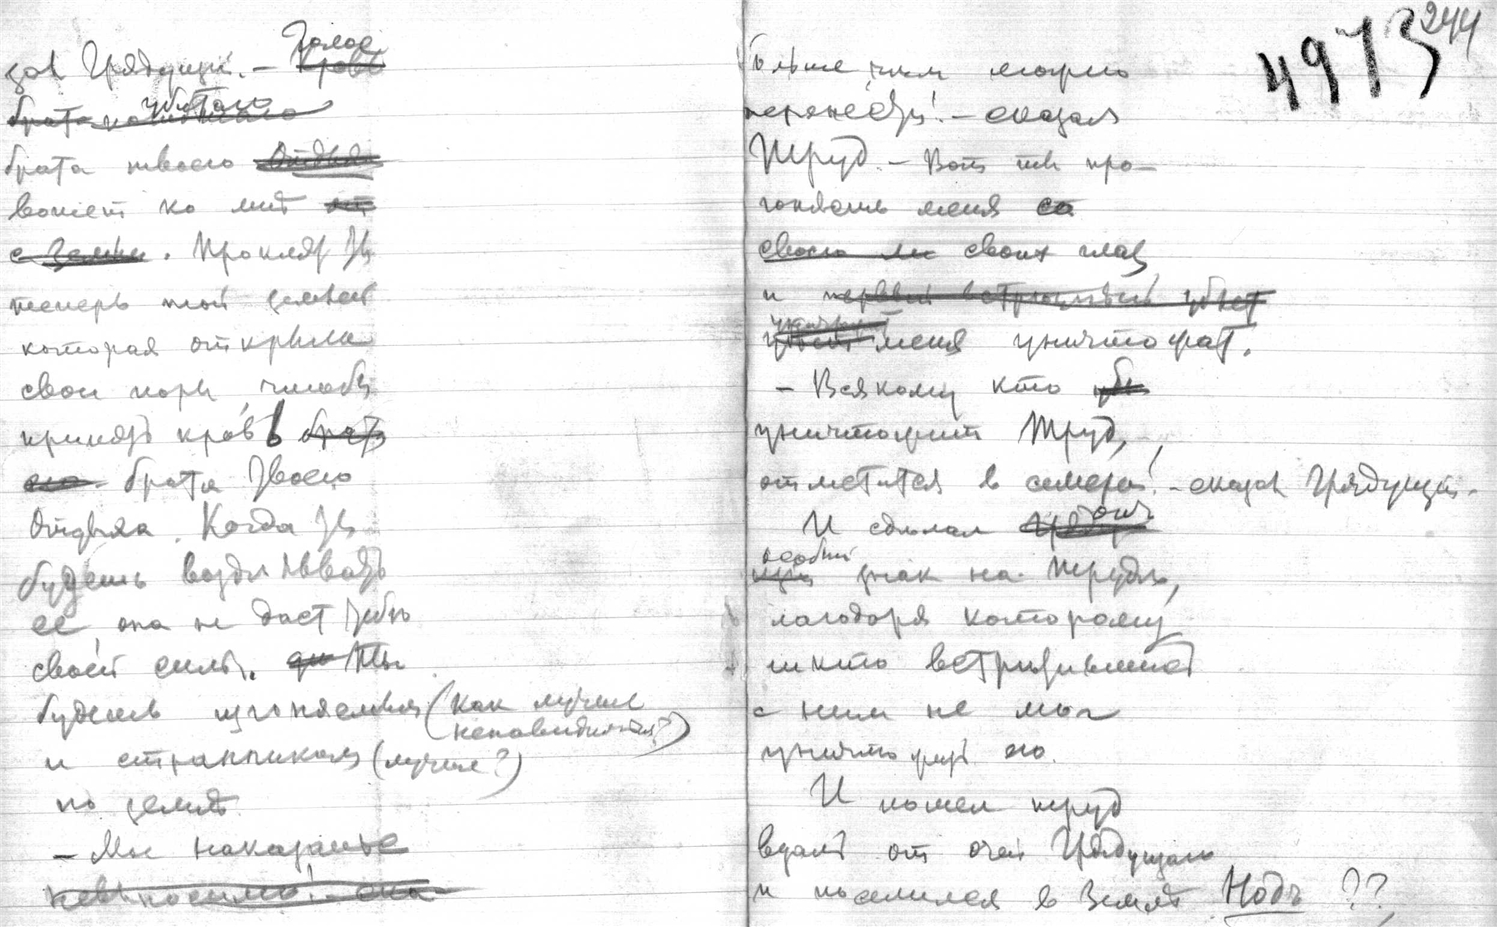 зал Грядущий. – Голос
кровь
убитого
брата
брата твоего отдыха
вопiет ко мнѣ от
с земли. Проклят ты
теперь той землей
которая открыла
свои поры, чтобы
принять кровь брата
его брата твоего
Отдыха. Когда ты
будешь воздѣлывать
ее, она не даст тебѣ
своей силы. Ты
будешь изгоняемым (как лучше
ненавидимым?)
и странником (лучше?)
по землѣ
– Мое наказанье
невыносимо! – ска
больше чем можно
перенести! – сказал
Труд. – Вот ты про-
гоняешь меня со
своего ли своих глаз,
и первый встрѣчный убьет
меня уничтожат.
– Всякому кто уби
уничтожит Труд,
отмстится в семеро! – сказал Грядущий.
И сдѣлал он
особый знак на Трудѣ,
благодаря которому
никто встрѣтившiйся
с ним не мог
уничтожить его.
И пошел труд
вдаль от очей Грядущаго
и поселился в Землѣ Нодъ ??
4973
244